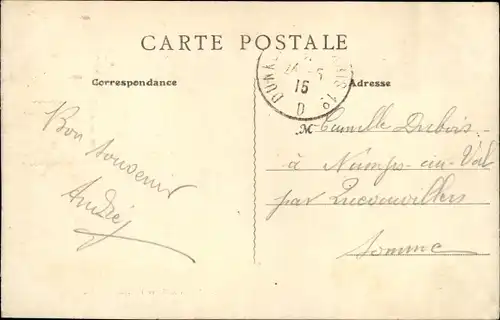 CARTE POSTALE
Correspondance
Adresse
15
D
Bon souvenir
André
M Camille Dubois
à Namps-au-Val
par Quevauvillers
Somme